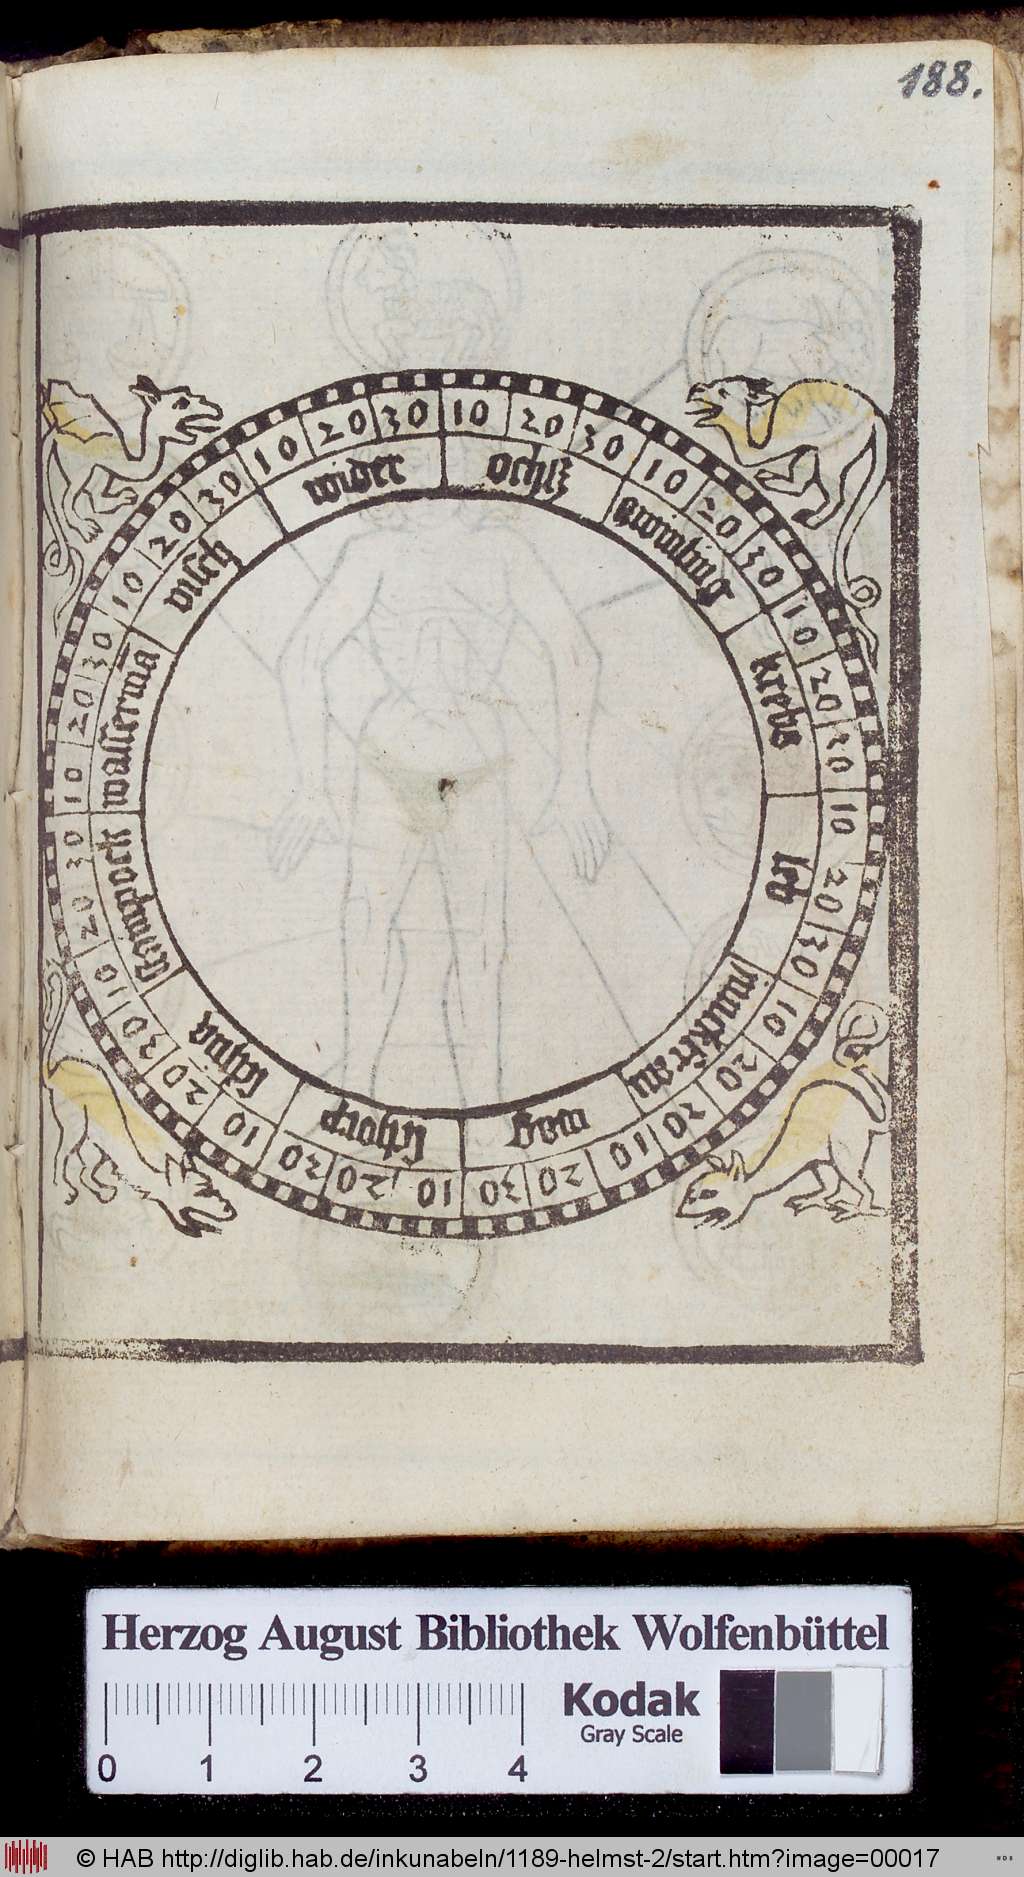 188.
10 20 30 10 20 30 10 20 30 10 20 30 10 20 30 10 20 30 10 20 30 10 20 30 10 20 30 10 20 30 10 20 30 10 20 30
wider
ochſz
zwinling
krebs
leo
junckfrau
wag
ſchorp
ſchucz
ſtainpock
waſſermā
viſch
Herzog August Bibliothek Wolfenbüttel
Kodak
Gray Scale
0 1 2 3 4
© HAB http://diglib.hab.de/inkunabeln/1189-helmst-2/start.htm?image=00017